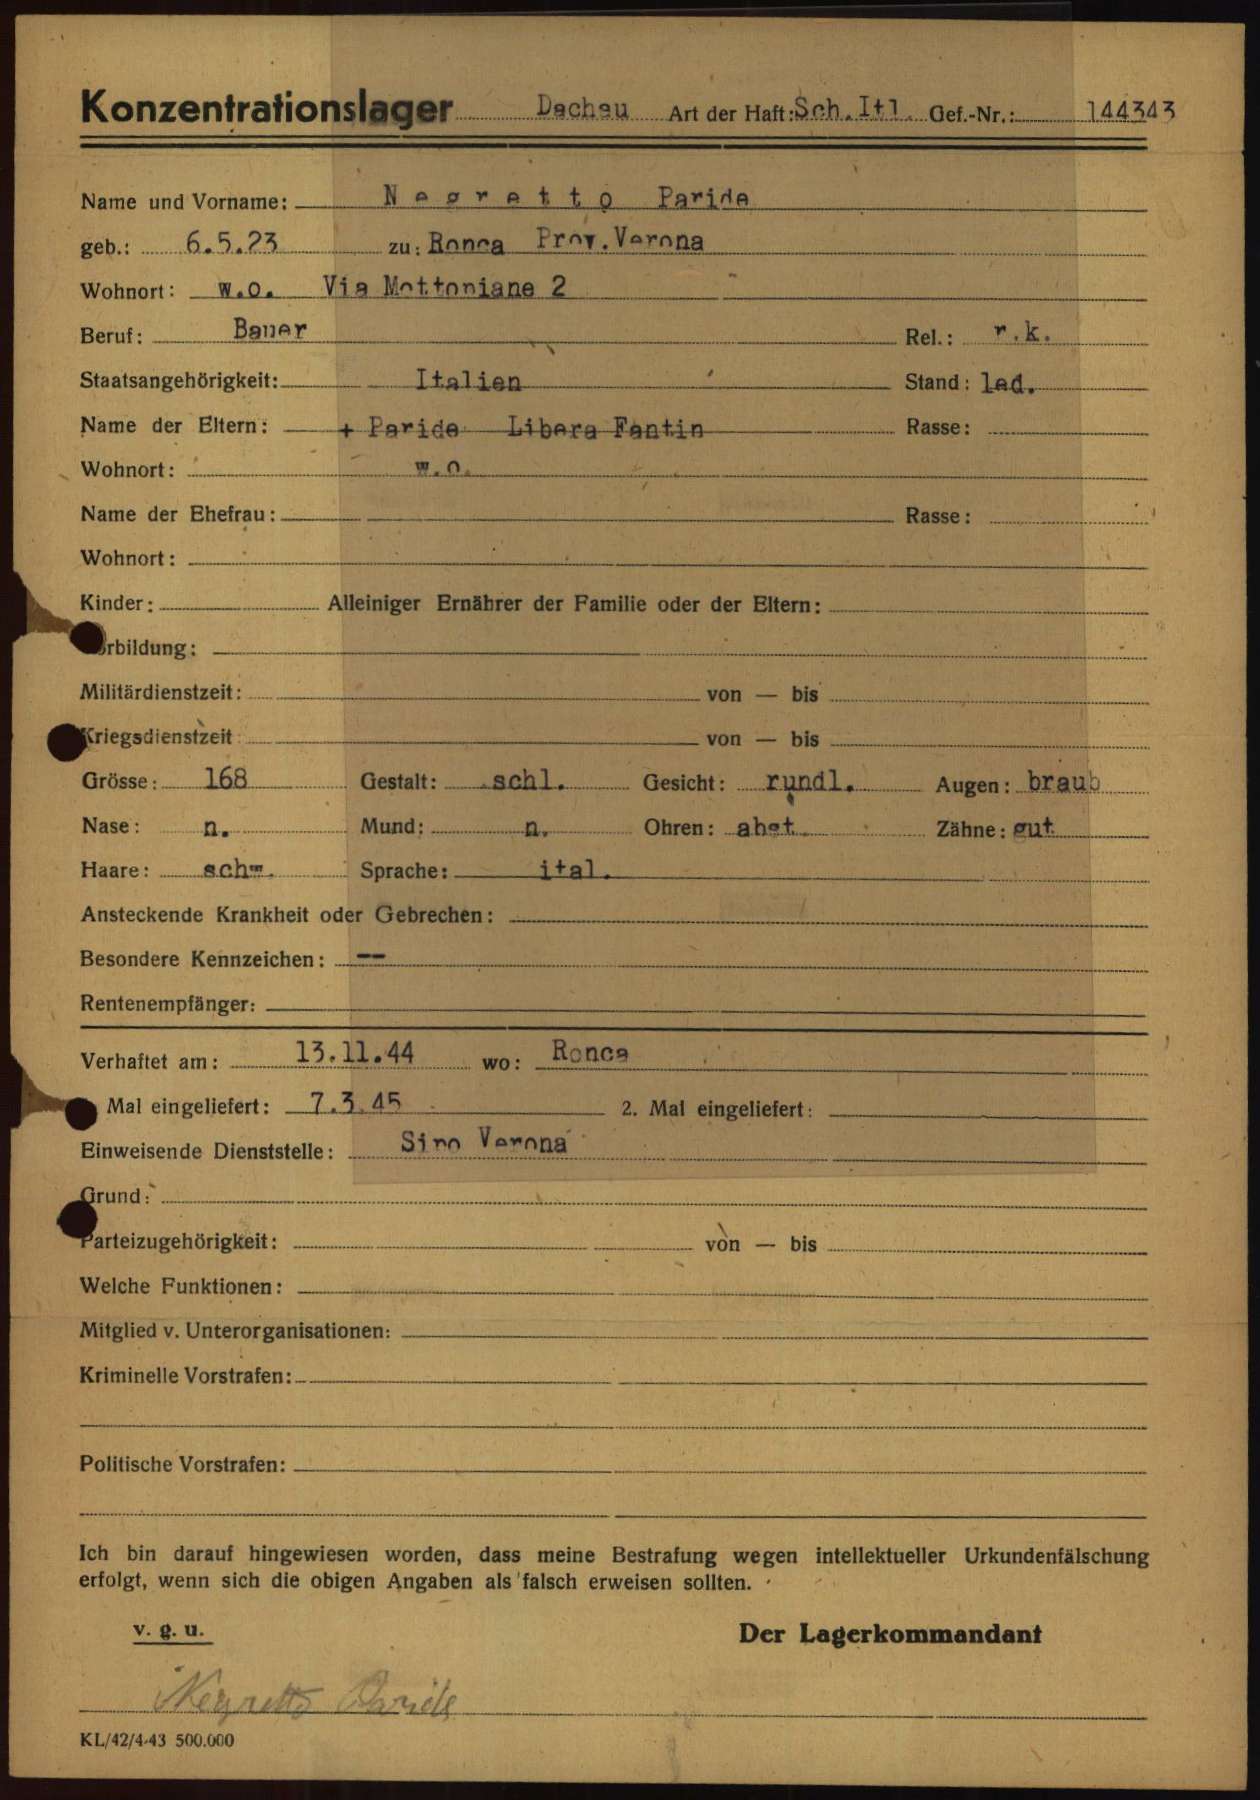 Konzentrationslager Dachau Art der Haft: Sch. Itl. Gef.-Nr.: 144343
Name und Vorname: Negretto Paride
geb.: 6.5.23 zu: Ronca Prov. Verona
Wohnort: w.o. Via Mottoniane 2
Beruf: Bauer Rel.: r.k.
Staatsangehörigkeit: Italien Stand: led.
Name der Eltern: + Paride Libera Fantin Rasse:
Wohnort: w.o.
Name der Ehefrau: Rasse:
Wohnort:
Kinder: Alleiniger Ernährer der Familie oder der Eltern:
orbildung:
Militärdienstzeit: von — bis
Kriegsdienstzeit von — bis
Grösse: 168 Gestalt: schl. Gesicht: rundl. Augen: braub
Nase: n. Mund: n. Ohren: abst Zähne: gut
Haare: schw. Sprache: ital.
Ansteckende Krankheit oder Gebrechen:
Besondere Kennzeichen: --
Rentenempfänger:
Verhaftet am: 13.11.44 wo: Ronca
Mal eingeliefert: 7.3.45 2. Mal eingeliefert:
Einweisende Dienststelle: Sipo Verona
Grund:
Parteizugehörigkeit: von — bis
Welche Funktionen:
Mitglied v. Unterorganisationen:
Kriminelle Vorstrafen:
Politische Vorstrafen:
Ich bin darauf hingewiesen worden, dass meine Bestrafung wegen intellektueller Urkundenfälschung
erfolgt, wenn sich die obigen Angaben als falsch erweisen sollten.
v. g. u. Der Lagerkommandant
Negretto Paride
KL/42/4-43 500.000